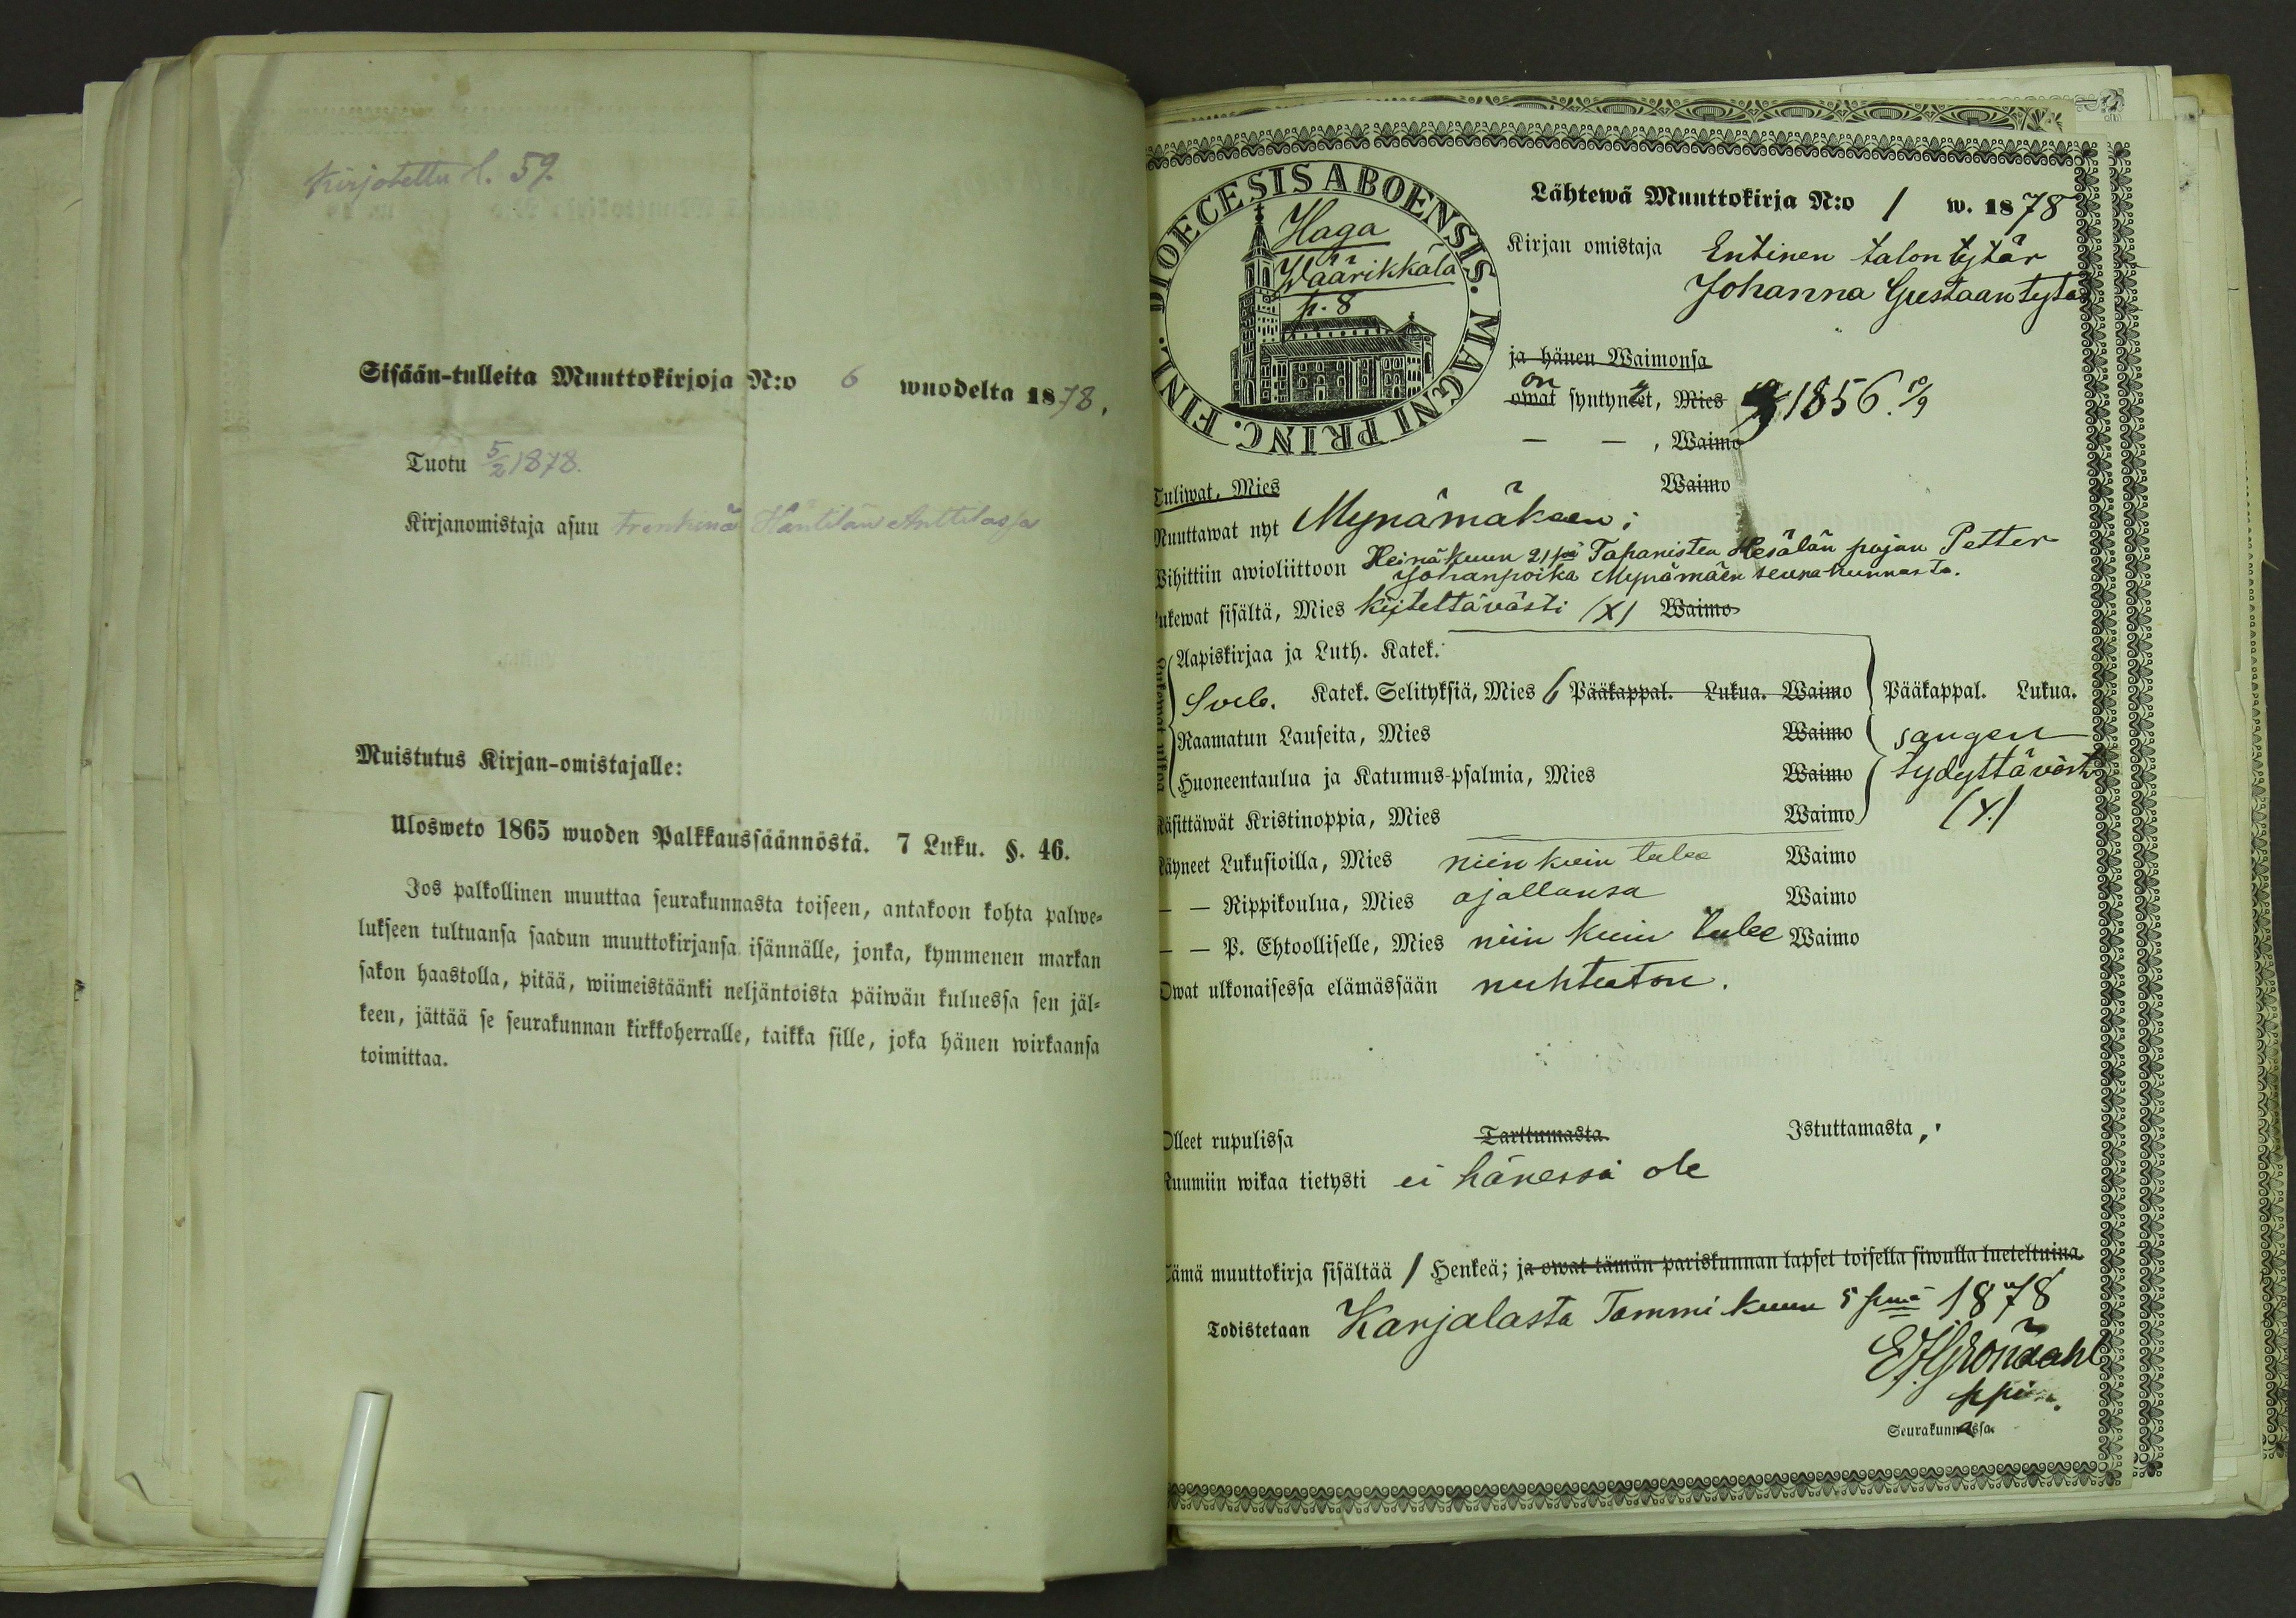 Kirjotettu l. 59.
Sisään-tulleita Muuttokirjoja N:o 6 wuodelta 1878.
Tuotu 5/2 1878.
Kirjanomistaja asuu trenkinä Häntilän Anttilassa
Muistutus Kirjan-omistajalle:
Ulosweto 1865 wuoden Palkkaussäännöstä. 7 Luku. §. 46.
Jos palkollinen muuttaa seurakunnasta toiseen, antakoon kohta palwe-
lukseen tultuansa saadun muuttokirjansa isännälle, jonka, kymmenen markan
sakon haastolla, pitää, wiimeistäänki neljäntoista päiwän kuluessa sen jäl-
keen, jättää se seurakunnan kirkkoherralle, taikka sille, joka hänen wirkaansa
toimittaa.
DIOECESIS ABOENSIS. MAGNI PRINC. FINL.
Haga
Wäärikkälä
p. 8
Lähtewä Muuttokirja N:o 1 w. 1878
Kirjan omistaja Entinen talontytär
Johanna Gustaantytär
ja hänen Waimonsa
on
owat syntyneet, Mies 1856. 10/9
— — , Waimo
Tuliwat, Mies Waimo
Muuttawat nyt Mynämäkeen;
Wihittiin awioliittoon Heinäkuun 21 Tapanisten Hesälän pojan Petter
Johanpoika Mynämäen seurakunnasta.
Lukewat sisältä, Mies kiitettävästi (X) Waimo
Aapiskirjaa ja Luth. Katek.
Sveb. Katek. Selityksiä, Mies 6 Pääkappal. Lukua. Waimo Pääkappal. Lukua.
Raamatun Lauseita, Mies Waimo sangen
Huoneentaulua ja Katumus-psalmia, Mies Waimo tydyttävästi
Käsittäwät Kristinoppia, Mies Waimo (X.)
Käyneet Lukusioilla, Mies niin kuin tulee Waimo
— — Rippikoulua, Mies ajallansa Waimo
— — P. Ehtoolliselle, Mies niin kuin tulee Waimo
Owat ulkonaisessa elämässään nuhteeton.
Olleet rupulissa Tarttumasta. Istuttamasta,
Ruumiin wikaa tietysti ei hänessä ole
Tämä muuttokirja sisältää 1 Henkeä; ja owat tämän pariskunnan lapset toisella siwulla lueteltuina
Todistetaan Karjalasta Tammikuun 5 pnä 1878
E. J. Gröndahl
Seurakunnassa.